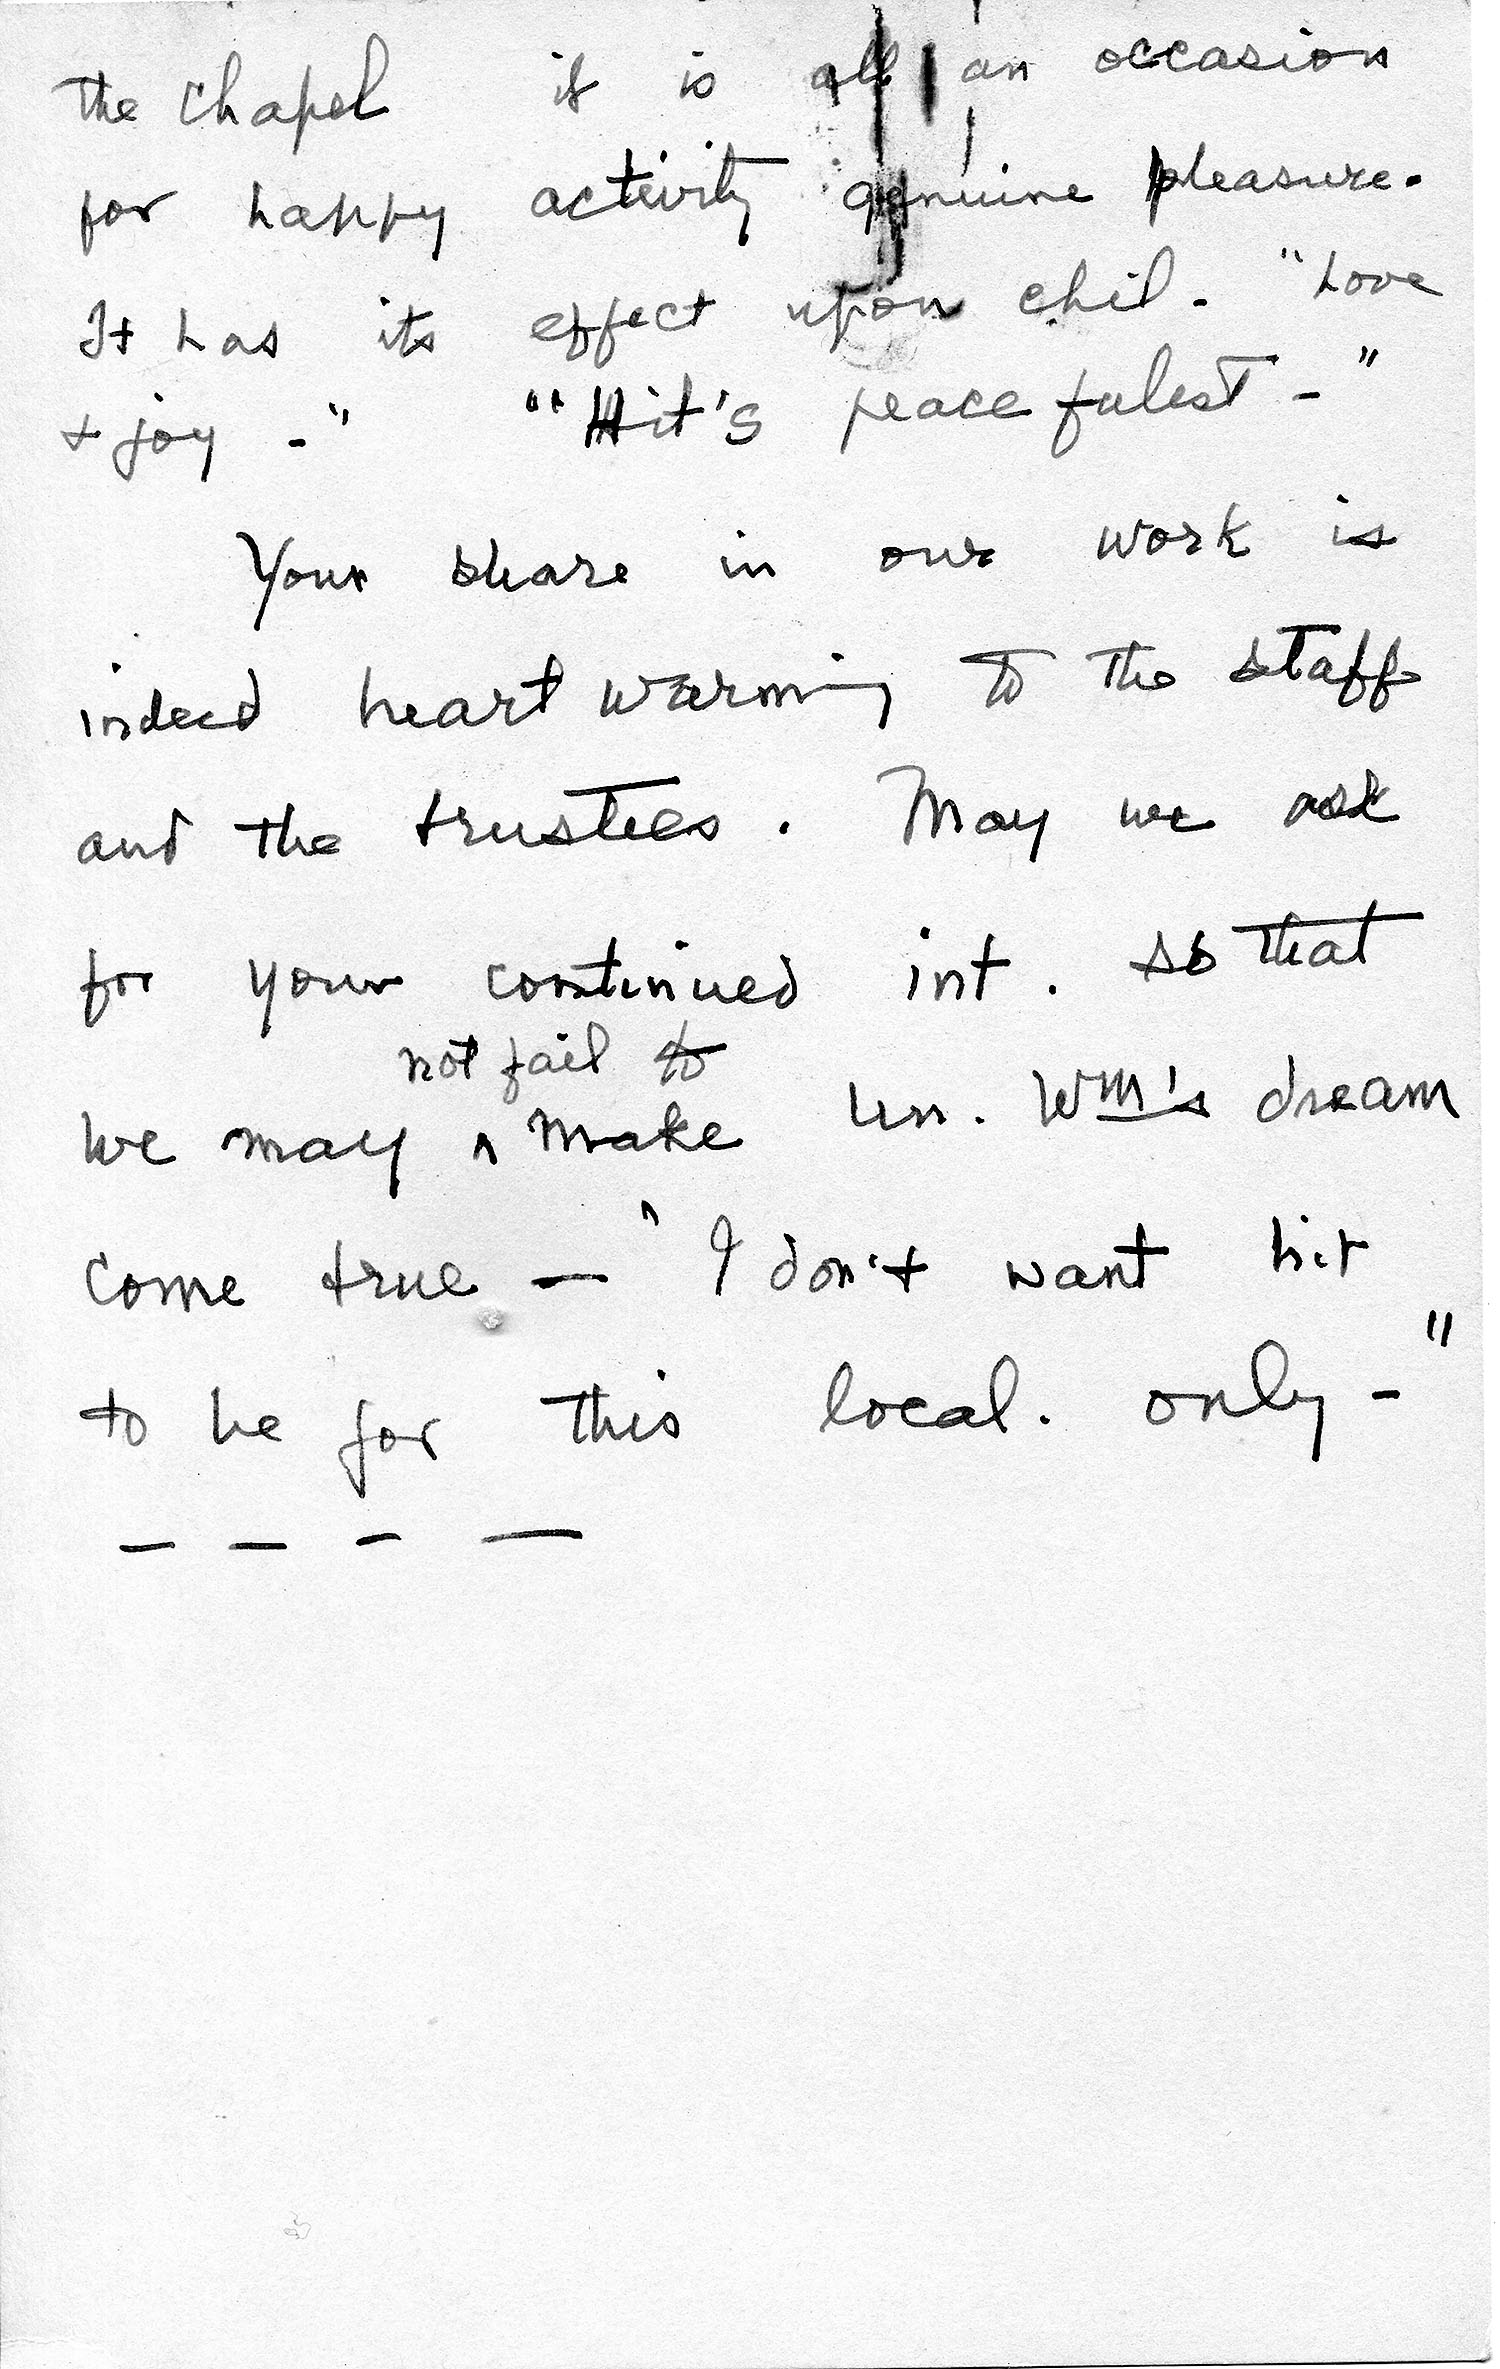 the Chapel it is all an occasion
for happy activity genuine pleasure.
It has its effect upon chil. "Love
& joy -" "Hit's peacefulest -"
Your share in our work is
indeed heart warming to the staff
and the trustees. May we ask
for your continued int. so that
not fail to
we may ^ make Un. Wm's dream
come true — "I don't want hit
to be for this local. only -"
— — — —